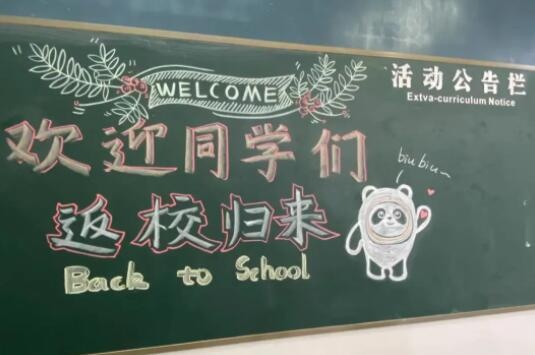 WELCOME
活动公告栏
Extva-curriculum Notice
欢迎同学们
biu biu~
返校归来
Back to School